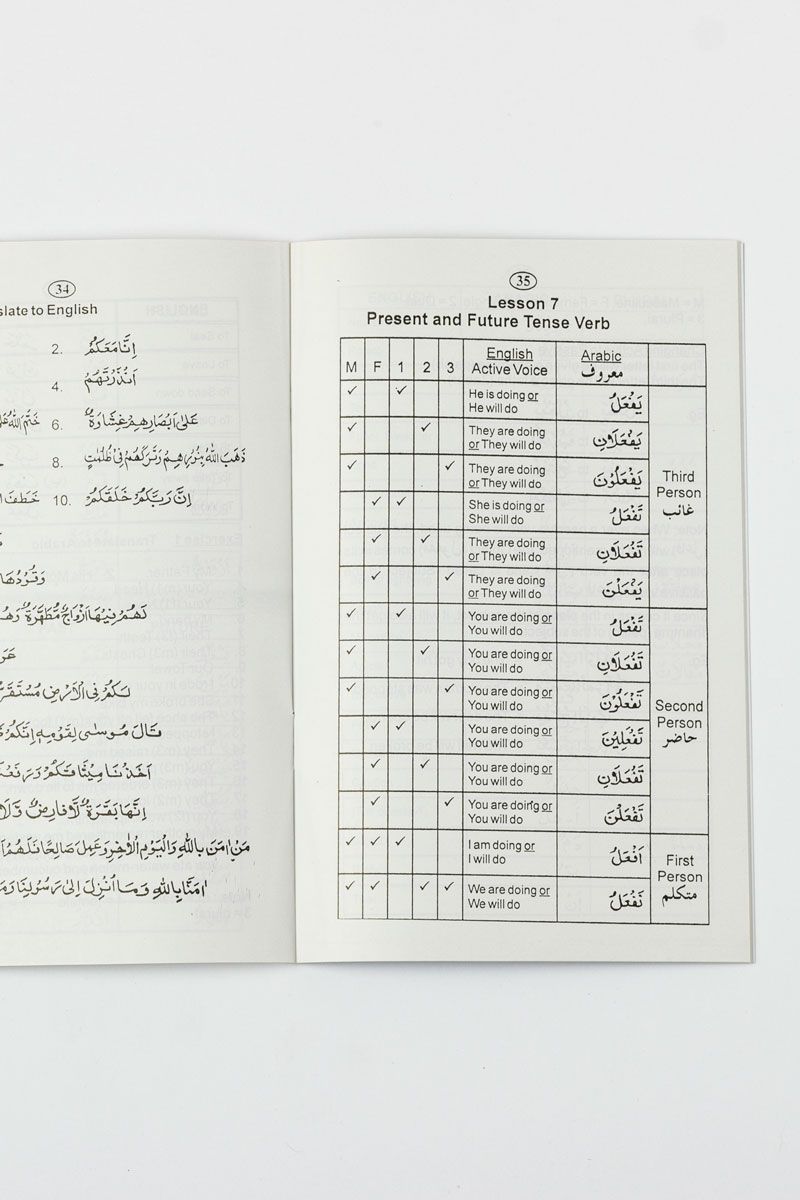 34
slate to English
2. اِنَّا مَعَكُمْ
4. اَنْذَرْتَهُمْ
6. عَلٰى اَبْصَارِهِمْ غِشَاوَةٌ
خَتَمَ اللهُ
8. ذَهَبَ اللهُ بِنُوْرِهِمْ وَتَرَكَهُمْ فِىْ ظُلُمٰتٍ
10. اِنَّ رَبَّكُمْ خَلَقَكُمْ
وَقُوْدُهَا
لَهُمْ فِيْهَا اَزْوَاجٌ مُّطَهَّرَةٌ
لَكُمْ فِى الْاَرْضِ
قَالَ مُوسٰى لِقَوْمِهٖ اِنَّكُمْ
اَخَذْنَا مِيْثَاقَكُمْ وَرَفَعْنَا
اِنَّهَا بَقَرَةٌ لَّا فَارِضٌ وَّلَا
مَنْ اٰمَنَ بِاللهِ وَالْيَوْمِ الْاٰخِرِ وَعَمِلَ صَالِحًا فَلَهُمْ
اٰمَنَّا بِاللهِ وَمَا اُنْزِلَ اِلٰى
35
Lesson 7
Present and Future Tense Verb
M F 1 2 3 English Arabic
Active Voice معروف
✓ ✓ He is doing or يَفْعَلُ
He will do
✓ ✓ They are doing يَفْعَلَانِ
or They will do
✓ ✓ They are doing يَفْعَلُوْنَ
or They will do
Third
Person
غائب
✓ ✓ She is doing or تَفْعَلُ
She will do
✓ ✓ They are doing تَفْعَلَانِ
or They will do
✓ ✓ They are doing يَفْعَلْنَ
or They will do
✓ ✓ You are doing or تَفْعَلُ
You will do
✓ ✓ You are doing or تَفْعَلَانِ
You will do
✓ ✓ You are doing or تَفْعَلُوْنَ
You will do
Second
Person
حاضر
✓ ✓ You are doing or تَفْعَلِيْنَ
You will do
✓ ✓ You are doing or تَفْعَلَانِ
You will do
✓ ✓ You are doing or تَفْعَلْنَ
You will do
✓ ✓ ✓ I am doing or اَفْعَلُ
I will do
First
Person
متكلم
✓ ✓ ✓ ✓ We are doing or نَفْعَلُ
We will do